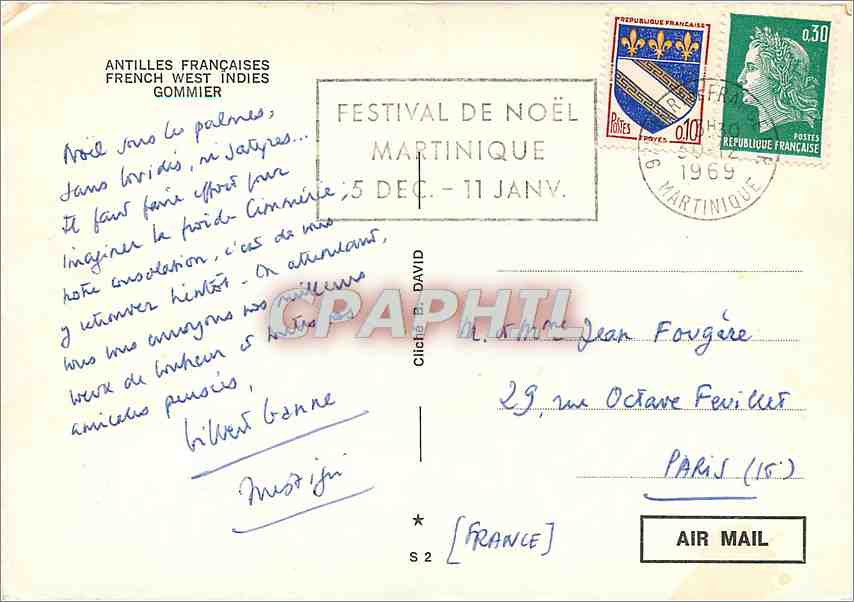 ANTILLES FRANÇAISES
FRENCH WEST INDIES
GOMMIER
Noël sous les palmes,
sans Ovidis, ni satyres...
Il faut faire effort pour
imaginer la froide Cimmérie ;
notre consolation, c'est de vous
y retrouver bientôt - En attendant,
nous vous envoyons nos meilleurs
voeux de bonheur et toutes nos
amicales pensées,
Gilbert Ganne
FESTIVAL DE NOËL
MARTINIQUE
15 DEC. - 11 JANV.
REPUBLIQUE FRANÇAISE
POSTES
0,10
0,30
POSTES
REPUBLIQUE FRANÇAISE
1969
MARTINIQUE
Cliché B. DAVID
CPAPHIL
M. et Mme Jean Fougère
29, rue Octave Feuillet
PARIS (16)
[FRANCE]
*
S 2
AIR MAIL